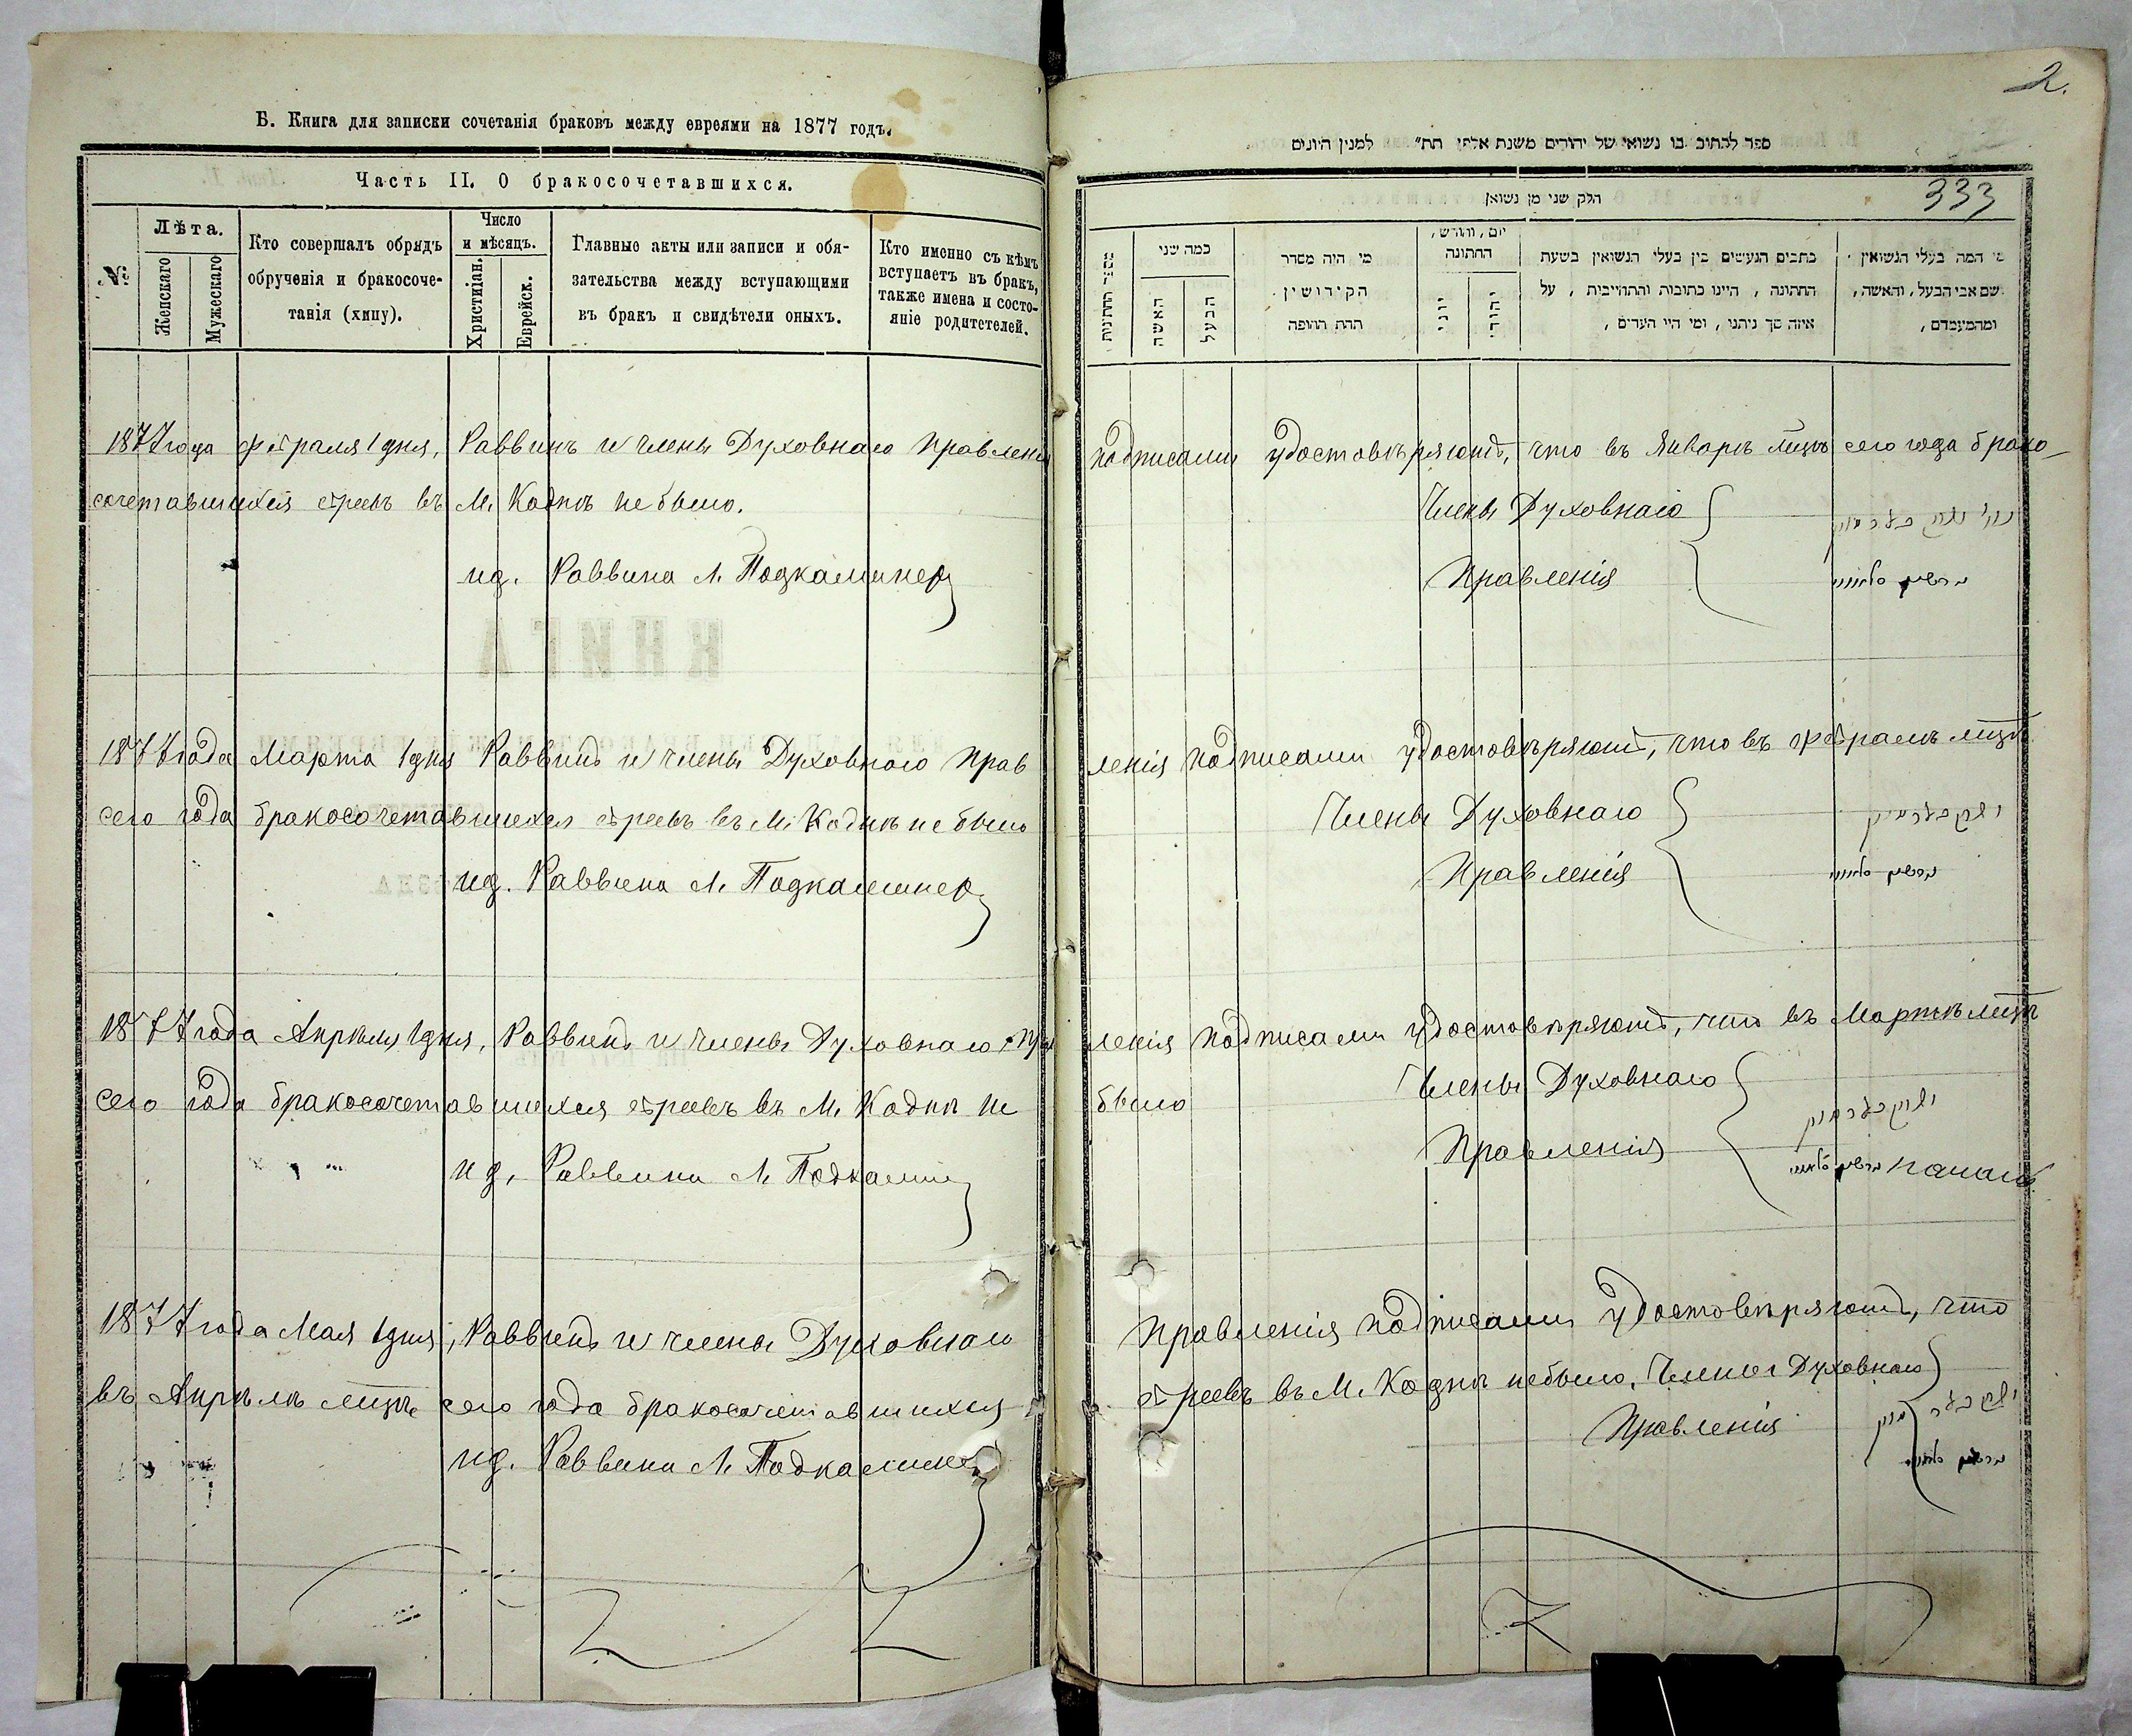 Б. Книга для записки сочетанія браковъ между евреями на 1877 годъ.
Часть II. О бракосочетавшихся.
№
Лѣта.
Женскаго
Мужескаго
Кто совершалъ обрядъ
обрученія и бракосоче-
танія (хипу).
Число
и мѣсяцъ.
Христіан.
Еврейск.
Главные акты или записи и обя-
зательства между вступающими
въ бракъ и свидѣтели оныхъ.
Кто именно съ кѣмъ
вступаетъ въ бракъ,
также имена и состо-
яніе родитетелей.
2.
ספר לכתוב בו נשואי של יהודים משנת אלפי תת" למנין היונים
333
חלק שני מן נשואין
מספר החתונות
כמה שני
האשה
הבעל
מי היה מסדר
הקידושין
תחת החופה
יום, וחודש,
החתונה
יוני
יהודי
כתבים הנעשים בין בעלי הנשואין בשעת
החתונה, היינו כתובות והתחייבות, על
איזה סך ניתנו, ומי היו העדים,
מי המה בעלי הנשואין
שם אבי הבעל, והאשה,
ומהמעמדם,
1877 года февраля 1 дня, Раввинъ и члены Духовнаго Правленія подписами удостовѣряютъ, что въ Январѣ мцѣ сего года брако-
сочетавшихся евреевъ въ М. Коднѣ не было.
Члены Духовнаго
ид. Раввина Л. Подкаминер
Правленія
1877 года Марта 1 дня Раввинъ и члены Духовнаго Прав ленія подписами удостовѣряютъ, что въ февралѣ мцѣ
сего года бракосочетавшихся евреевъ въ М. Коднѣ не было
Члены Духовнаго
ид. Раввина Л. Подкаминер
Правленія
1877 года Апрѣля 1 дня, Раввинъ и члены Духовнаго Прав ленія подписами удостовѣряютъ, что въ Мартѣ мцѣ
сего года бракосочетавшихся евреевъ въ М. Коднѣ не было
Члены Духовнаго
ид. Раввина Л. Подкамин
Правленія
1877 года Мая 1 дня, Раввинъ и члены Духовнаго Правленія подписами удостовѣряютъ, что
въ Апрѣлѣ мцѣ сего года бракосочетавшихся евреевъ въ М. Коднѣ не было. Члены Духовнаго
ид. Раввина Л. Подкаминер
Правленія